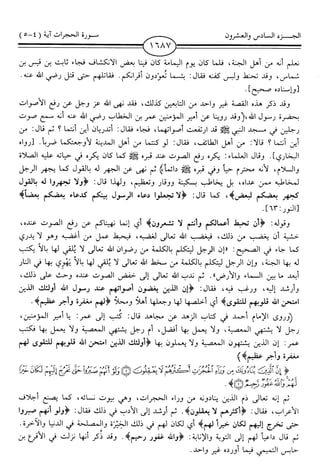 الجزء السادس والعشرون
١٦٨٧
سورة الحجرات آية (٤-٥)
نعلم أنه من أهل الجنة، فلما كان يوم اليمامة كان فينا بعض الانكشاف فجاء ثابت بن قيس بن
شماس، وقد تحنط ولبس كفنه فقال: بئسما تُعوّدون أقرانكم. فقاتلهم حتى قتل رضي الله عنه.
[وإسناده صحيح].
وقد ذكر هذه القصة غير واحد من التابعين كذلك، فقد نهى الله عز وجل عن رفع الأصوات
بحضرة رسول الله، (وقد روينا عن أمير المؤمنين عمر بن الخطاب رضي الله عنه أنه سمع صوت
رجلين في مسجد النبي ﷺ قد ارتفعت أصواتهما، فجاء فقال: أتدريان أين أنتما؟ ثم قال: من
أين أنتما؟ قالا: من أهل الطائف، فقال: لو كنتما من أهل المدينة لأوجعتكما ضرباً. [رواه
البخاري]. وقال العلماء: يكره رفع الصوت عند قبره ﷺ كما كان يكره في حياته عليه الصلاة
والسلام، لأنه محترم حياً وفي قبره ﷺ دائماً) ثم نهى عن الجهر له بالقول كما يجهر الرجل
لمخاطبه ممن عداه، بل يخاطب بسكينة ووقار وتعظيم، ولهذا قال: ﴿ولا تجهروا له بالقول
كجهر بعضكم لبعض﴾، كما قال: ﴿لا تجعلوا دعاء الرسول بينكم كدعاء بعضكم بعضاً﴾
[النور: ٦٣].
وقوله: ﴿أن تحبط أعمالكم وأنتم لا تشعرون﴾ أي إنما نهيناكم عن رفع الصوت عنده،
خشية أن يغضب من ذلك، فيغضب الله تعالى لغضبه، فيحبط عمل من أغضبه وهو لا يدري
كما جاء في الصحيح: «إن الرجل ليتكلم بالكلمة من رضوان الله تعالى لا يُلقي لها بالاً يكتب
له بها الجنة، وإن الرجل ليتكلم بالكلمة من سخط الله تعالى لا يُلقي لها بالاً يَهْوِي بها في النار
أبعد ما بين السماء والأرض». ثم ندب الله تعالى إلى خفض الصوت عنده وحث على ذلك،
وأرشد إليه، ورغب فيه، فقال: ﴿إن الذين يغضون أصواتهم عند رسول الله أولئك الذين
امتحن الله قلوبهم للتقوى﴾ أي أخلصها لها وجعلها أهلاً ومحلاً ﴿لهم مغفرة وأجر عظيم﴾.
(وروى الإمام أحمد في كتاب الزهد عن مجاهد قال: كُتب إلى عمر: يا أمير المؤمنين،
رجل لا يشتهي المعصية، ولا يعمل بها أفضل، أم رجل يشتهي المعصية ولا يعمل بها فكتب
عمر: إن الذين يشتهون المعصية ولا يعملون بها ﴿أولئك الذين امتحن الله قلوبهم للتقوى لهم
مغفرة وأجر عظيم﴾)
﴿إِنَّ الَّذِينَ يُنَادُونَكَ مِن وَرَاءِ الْحُجُرَاتِ أَكْثَرُهُمْ لَا يَعْقِلُونَ ۝ وَلَوْ أَنَّهُمْ صَبَرُوا حَتَّىٰ تَخْرُجَ إِلَيْهِمْ لَكَانَ خَيْرًا
لَّهُمْ وَاللَّهُ غَفُورٌ رَّحِيمٌ ۝﴾.
ثم إنه تعالى ذم الذين ينادونه من وراء الحجرات، وهي بيوت نسائه، كما يصنع أجلاف
الأعراب، فقال: ﴿أكثرهم لا يعقلون﴾. ثم أرشد إلى الأدب في ذلك فقال: ﴿ولو أنهم صبروا
حتى تخرج إليهم لكان خيراً لهم﴾ أي لكان لهم في ذلك الخِيَرَة والمصلحة في الدنيا والآخرة.
ثم قال داعياً لهم إلى التوبة والإنابة: ﴿والله غفور رحيم﴾. وقد ذُكر أنها نزلت في الأقرع بن
حابس التميمي فيما أورده غير واحد.